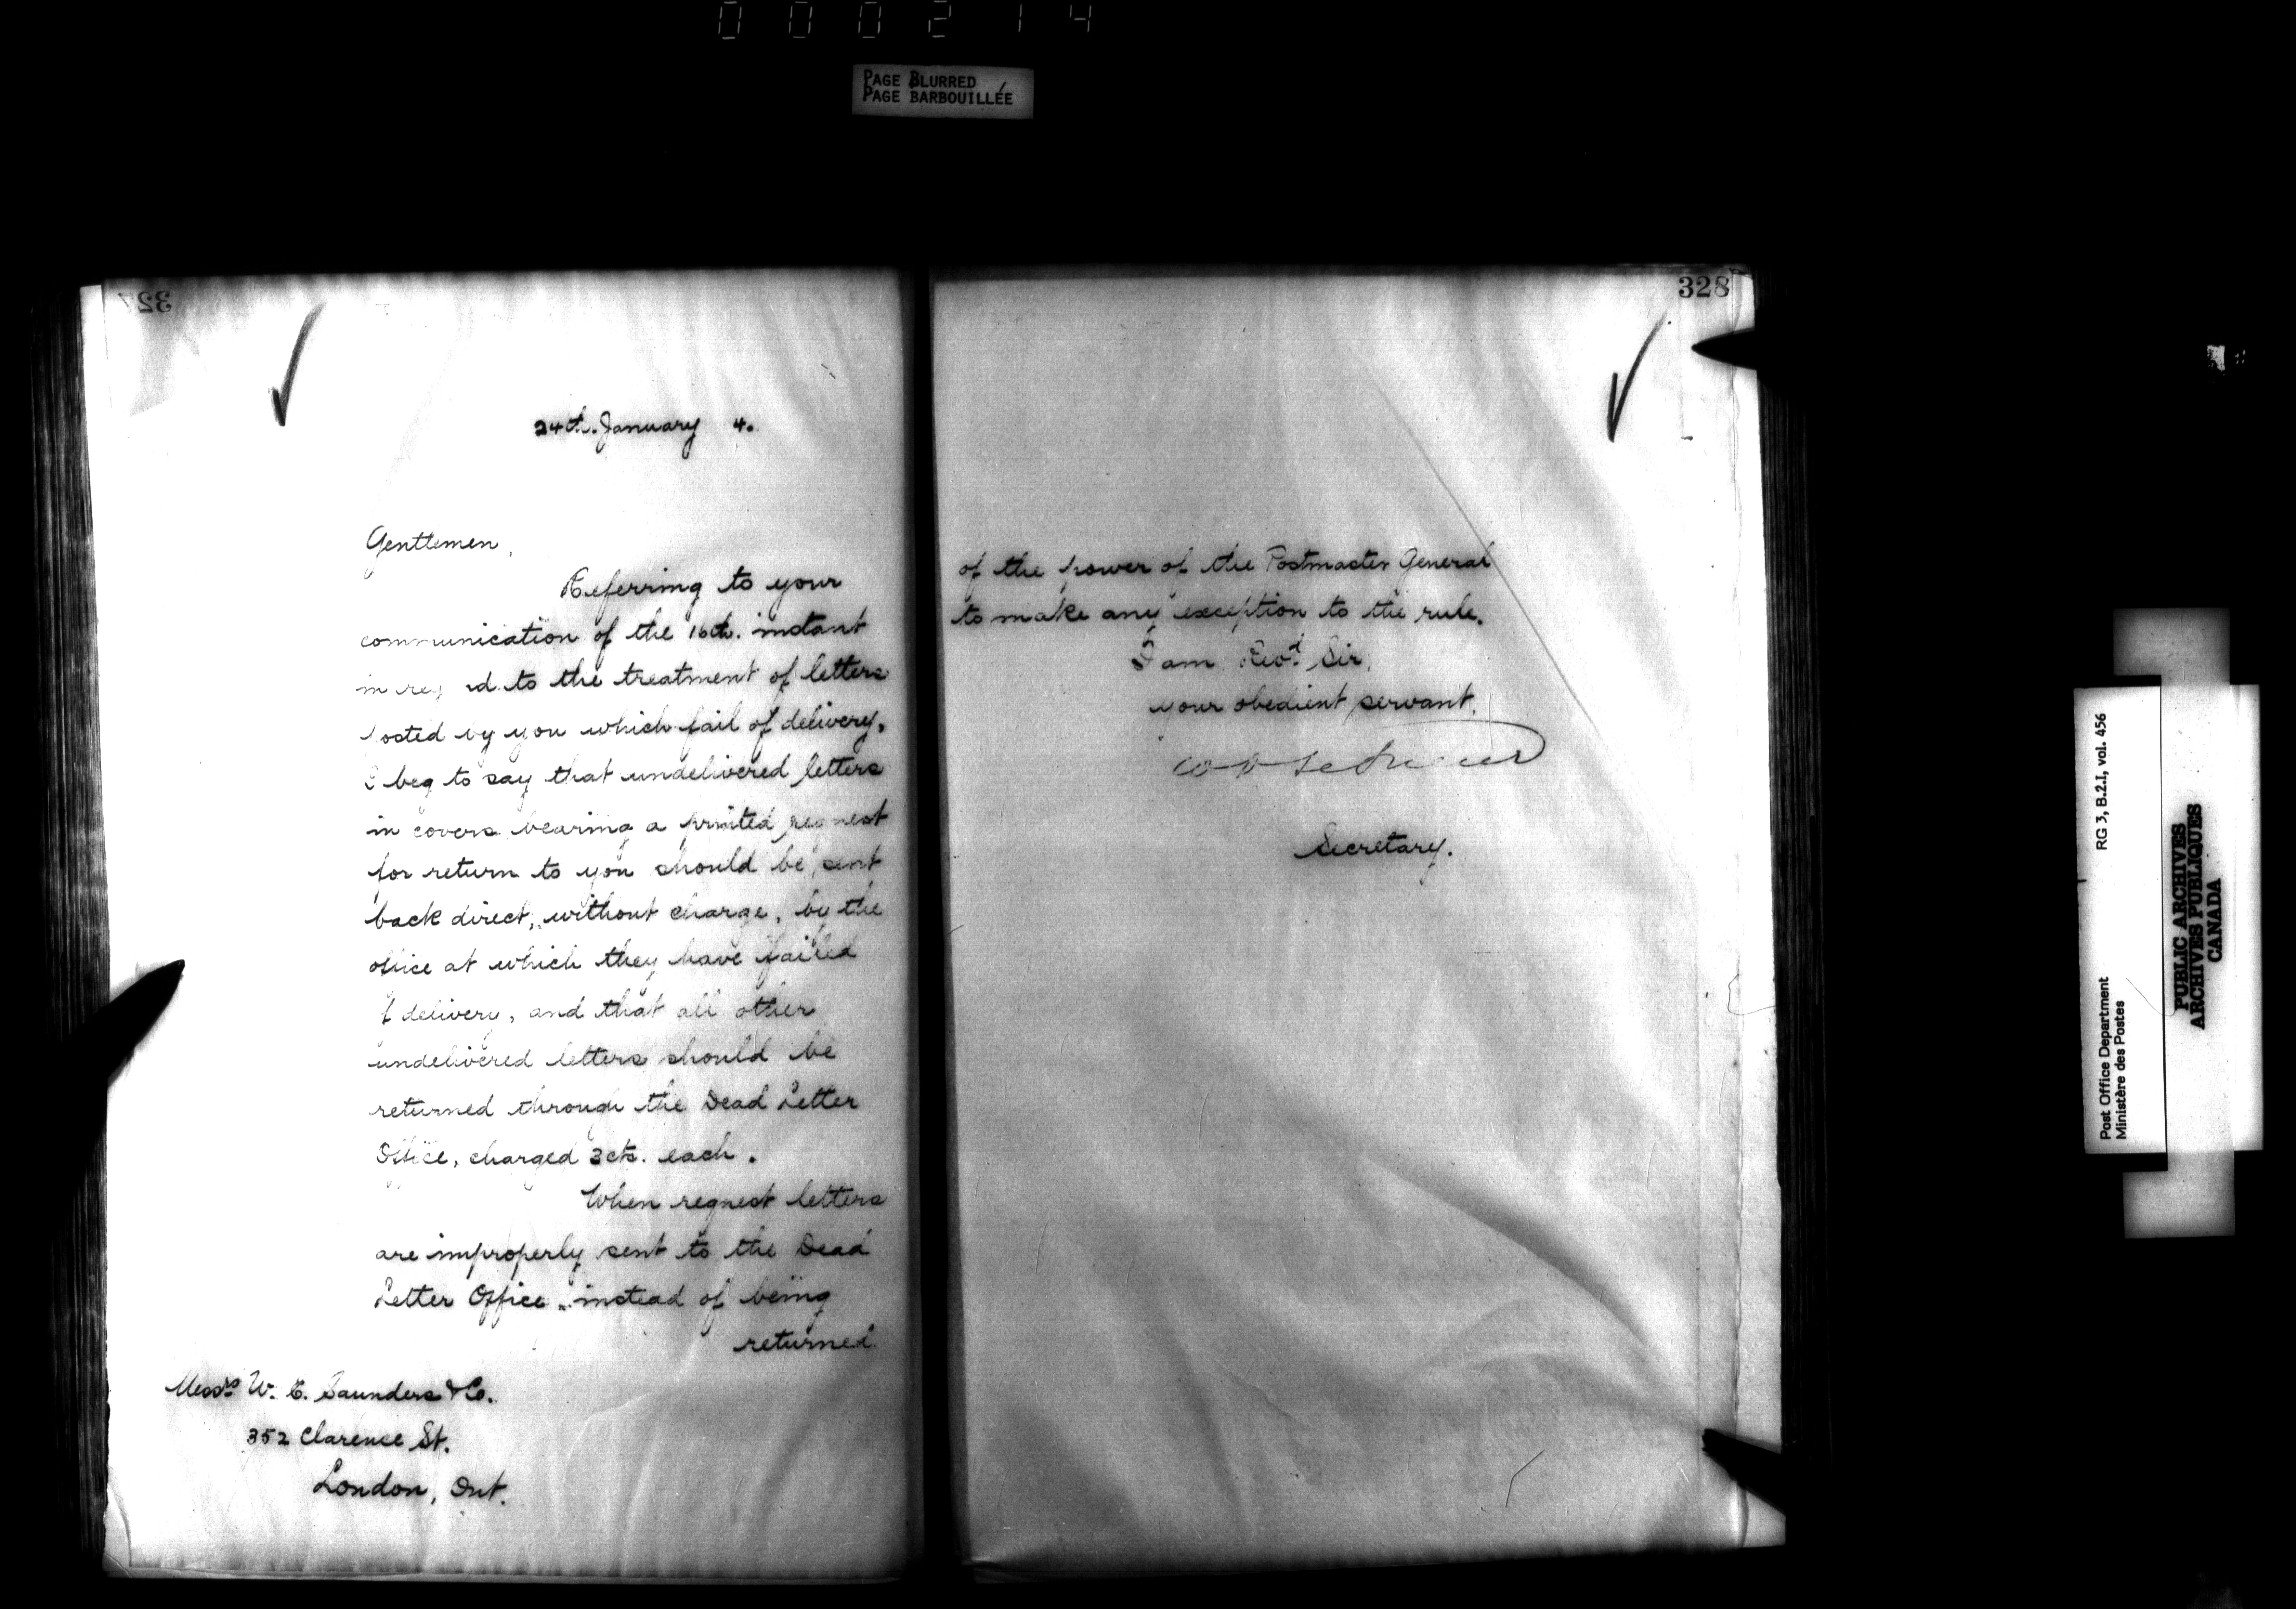 000214
PAGE BLURRED
PAGE BARBOUILLÉE
327
24th. January 4.
Gentlemen,
Referring to your
communication of the 16th. instant
in reg d to the treatment of letters
osted by you which fail of delivery,
I beg to say that undelivered letters
in covers bearing a printed request
for return to you should be sent
back direct, without charge, by the
office at which they have failed
f delivery, and that all other
undelivered letters should be
returned through the Dead Letter
Office, charged 3 cts. each.
When request letters
are improperly sent to the Dead
Letter Office, instead of being
returned
Messrs W. E. Saunders & Co.
352 Clarence St.
London, Ont.
328
of the power of the Postmaster General
to make any exception to the rule.
I am Revd. Sir,
your obedient servant,
Secretary.
RG 3, B.2.I, vol. 456
Post Office Department
Ministère des Postes
PUBLIC ARCHIVES
ARCHIVES PUBLIQUES
CANADA